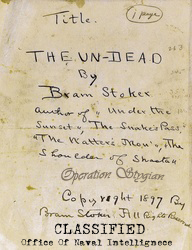 1 page
Title.
THE UN-DEAD
By
Bram Stoker
author of "Under the
Sunset", "The Snake's Pass",
"The Watter's Mou'", "The
Shoulder of Shasta"
Operation Stygian
Copyright 1897 By
Bram Stoker. All Rights
CLASSIFIED
Office Of Naval Intellignece